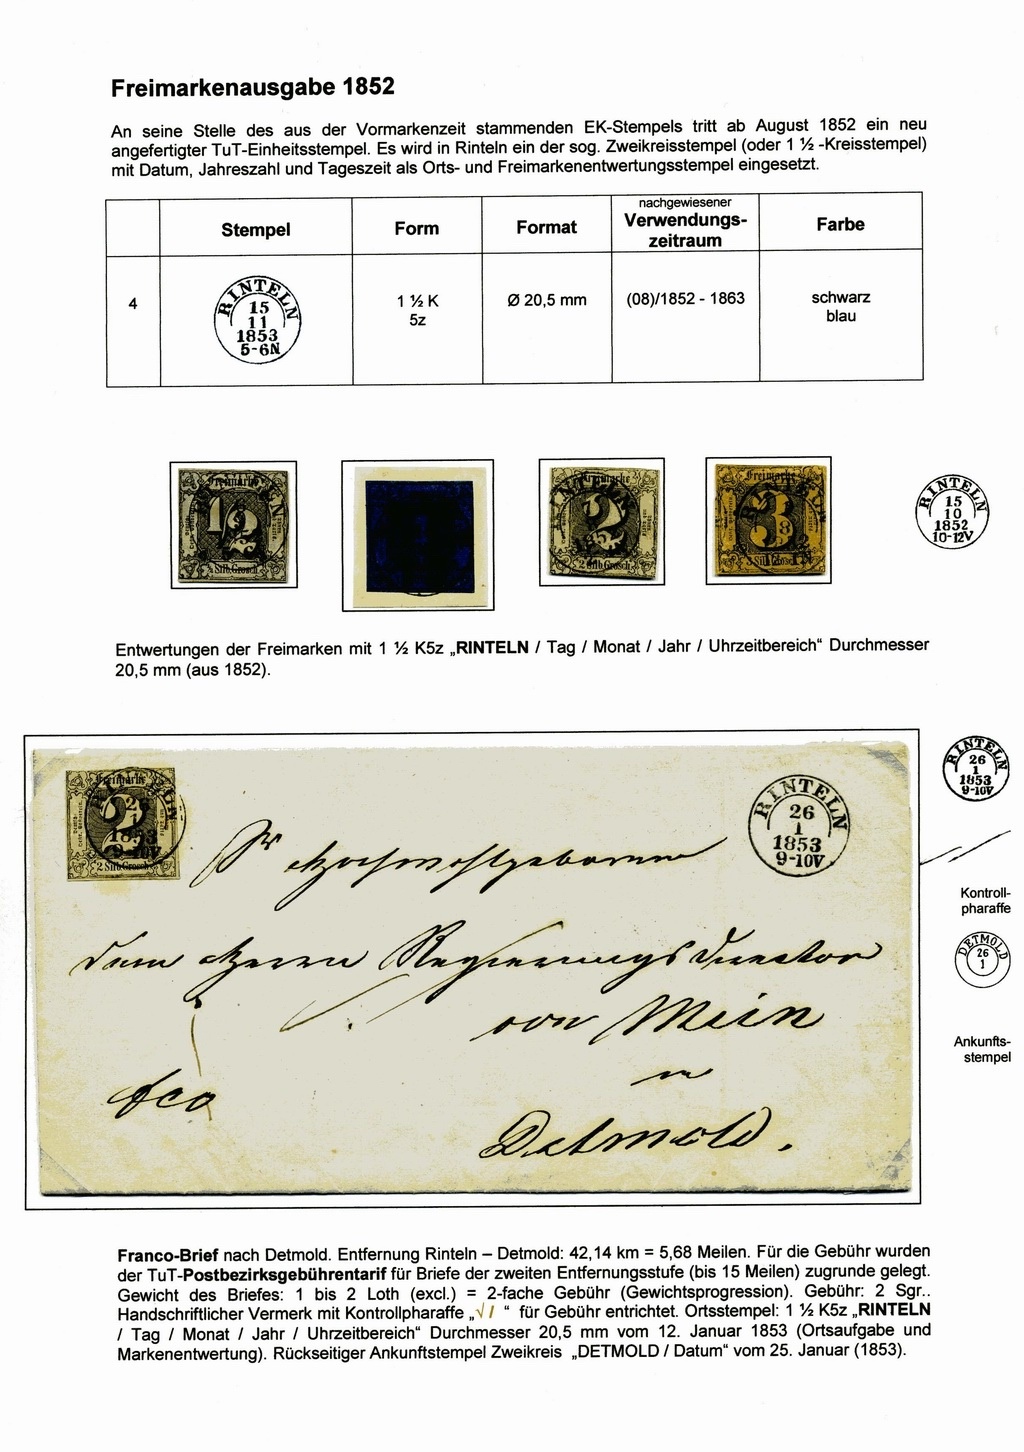 Freimarkenausgabe 1852
An seine Stelle des aus der Vormarkenzeit stammenden EK-Stempels tritt ab August 1852 ein neu
angefertigter TuT-Einheitsstempel. Es wird in Rinteln ein der sog. Zweikreisstempel (oder 1 ½ -Kreisstempel)
mit Datum, Jahreszahl und Tageszeit als Orts- und Freimarkenentwertungsstempel eingesetzt.
Stempel
Form
Format
nachgewiesener
Verwendungs-
zeitraum
Farbe
4
RINTELN
15
11
1853
5-6N
1 ½ K
5z
Ø 20,5 mm
(08)/1852 - 1863
schwarz
blau
Freimarke
1/2
Silb.Grosch
Freimarke
2
2 Silb.Grosch
Freimarke
3
3 Silb.Grosch
RINTELN
15
10
1852
10-12V
Entwertungen der Freimarken mit 1 ½ K5z „RINTELN / Tag / Monat / Jahr / Uhrzeitbereich“ Durchmesser
20,5 mm (aus 1852).
Freimarke
2
2 Silb.Grosch
RINTELN
26
1
1853
9-10V
RINTELN
26
1
1853
9-10V
Sr Hochwohlgeboren
dem Herrn Regierungs Director
von Mein
in
fco
Detmold.
Kontroll-
pharaffe
DETMOLD
26
1
Ankunfts-
stempel
Franco-Brief nach Detmold. Entfernung Rinteln – Detmold: 42,14 km = 5,68 Meilen. Für die Gebühr wurden
der TuT-Postbezirksgebührentarif für Briefe der zweiten Entfernungsstufe (bis 15 Meilen) zugrunde gelegt.
Gewicht des Briefes: 1 bis 2 Loth (excl.) = 2-fache Gebühr (Gewichtsprogression). Gebühr: 2 Sgr..
Handschriftlicher Vermerk mit Kontrollpharaffe „√ / “ für Gebühr entrichtet. Ortsstempel: 1 ½ K5z „RINTELN
/ Tag / Monat / Jahr / Uhrzeitbereich“ Durchmesser 20,5 mm vom 12. Januar 1853 (Ortsaufgabe und
Markenentwertung). Rückseitiger Ankunftstempel Zweikreis „DETMOLD / Datum“ vom 25. Januar (1853).